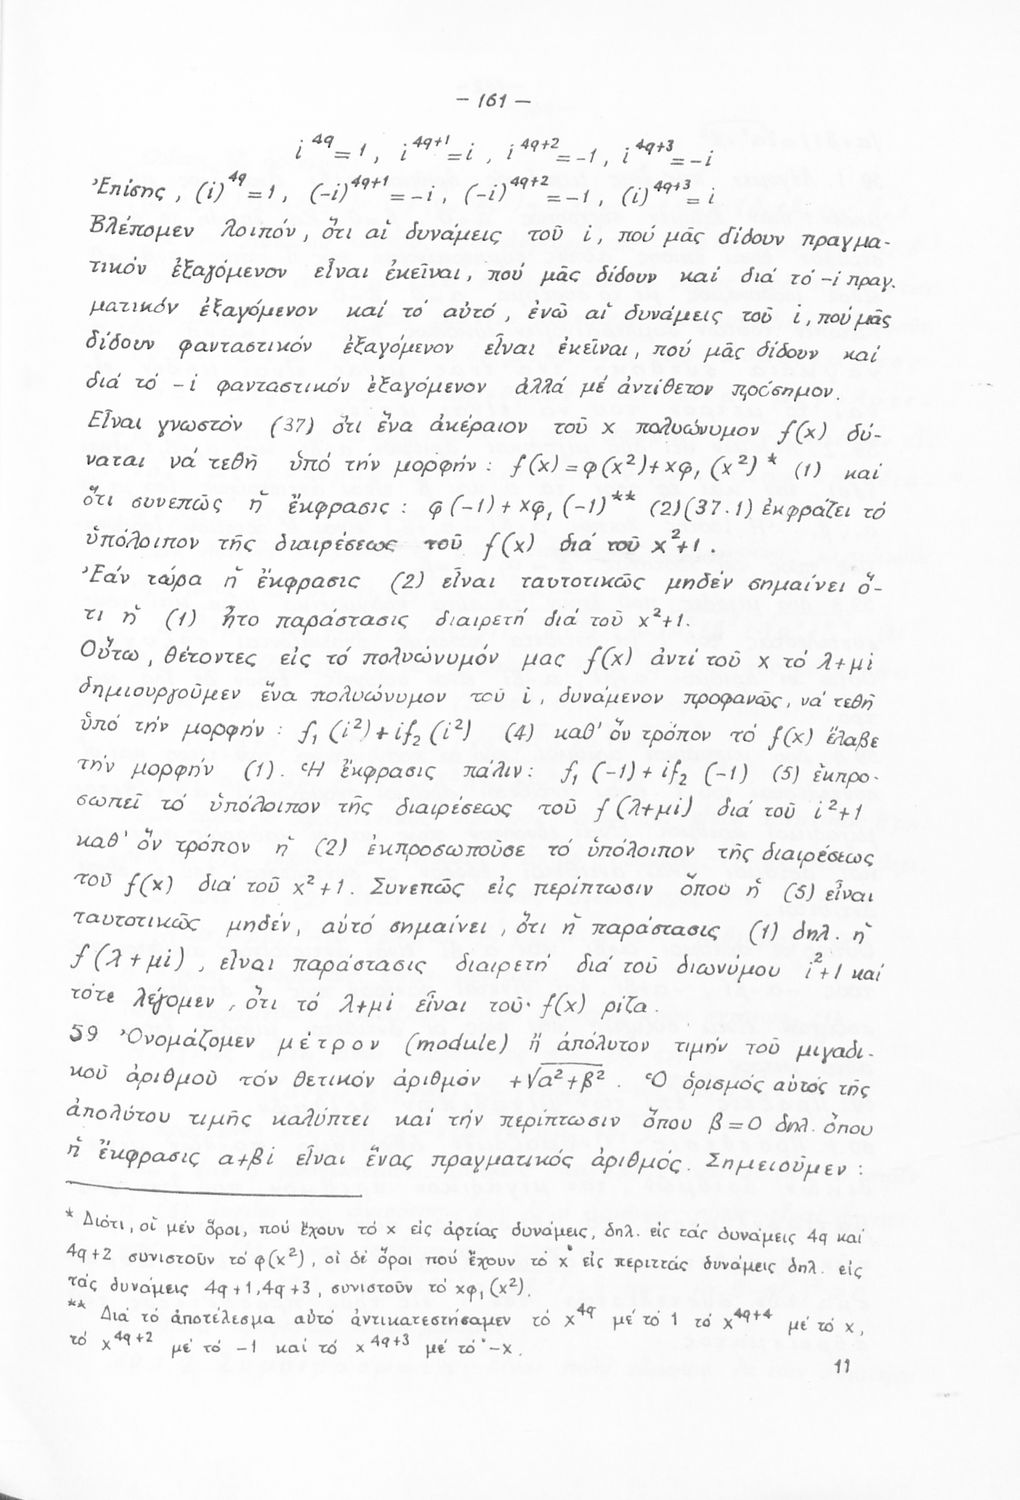 - 161 -
i^4q = 1, i^4q+1 = i, i^4q+2 = -1, i^4q+3 = -i
Ἐπίσης, (i)^4q = 1, (-i)^4q+1 = -i, (-i)^4q+2 = -1, (i)^4q+3 = i
Βλέπομεν λοιπόν, ὅτι αἱ δυνάμεις τοῦ i, πού μᾶς δίδουν πραγμα-
τικόν ἐξαγόμενον εἶναι ἐκεῖναι, πού μᾶς δίδουν καί διά τό -i πραγ.
ματικόν ἐξαγόμενον καί τό αὐτό, ἐνῶ αἱ δυνάμεις τοῦ i, πού μᾶς
δίδουν φανταστικόν ἐξαγόμενον εἶναι ἐκεῖναι, πού μᾶς δίδουν καί
διά τό -i φανταστικόν ἐξαγόμενον ἀλλά μέ ἀντίθετον πρόσημον.
Εἶναι γνωστόν (37) ὅτι ἕνα ἀκέραιον τοῦ x πολυώνυμον f(x) δύ-
ναται νά τεθῆ ὑπό τήν μορφήν: f(x) = φ(x²)+xφ₁(x²)* (1) καί
ὅτι συνεπῶς ἡ ἔκφρασις: φ(-1)+xφ₁(-1)** (2)(37.1) ἐκφράζει τό
ὑπόλοιπον τῆς διαιρέσεως τοῦ f(x) διά τοῦ x²+1.
Ἐάν τώρα ἡ ἔκφρασις (2) εἶναι ταυτοτικῶς μηδέν σημαίνει ὅ-
τι ἡ (1) ἦτο παράστασις διαιρετή διά τοῦ x²+1.
Οὕτω, θέτοντες εἰς τό πολυώνυμόν μας f(x) ἀντί τοῦ x τό λ+μi
δημιουργοῦμεν ἕνα πολυώνυμον τοῦ i, δυνάμενον προφανῶς, νά τεθῆ
ὑπό τήν μορφήν: f₁(i²)+if₂(i²) (4) καθ' ὅν τρόπον τό f(x) ἔλαβε
τήν μορφήν (1). Ἡ ἔκφρασις πάλιν: f₁(-1)+if₂(-1) (5) ἐκπρο-
σωπεῖ τό ὑπόλοιπον τῆς διαιρέσεως τοῦ f(λ+μi) διά τοῦ i²+1
καθ' ὅν τρόπον ἡ (2) ἐκπροσωποῦσε τό ὑπόλοιπον τῆς διαιρέσεως
τοῦ f(x) διά τοῦ x²+1. Συνεπῶς εἰς περίπτωσιν ὅπου ἡ (5) εἶναι
ταυτοτικῶς μηδέν, αὐτό σημαίνει, ὅτι ἡ παράστασις (1) δηλ. ἡ
f(λ+μi), εἶναι παράστασις διαιρετή διά τοῦ διωνύμου i²+1 καί
τότε λέγομεν, ὅτι τό λ+μi εἶναι τοῦ f(x) ρίζα.
59 Ὀνομάζομεν μέτρον (module) ἤ ἀπόλυτον τιμήν τοῦ μιγαδι-
κοῦ ἀριθμοῦ τόν θετικόν ἀριθμόν +√α²+β². Ὁ ὁρισμός αὐτός τῆς
ἀπολύτου τιμῆς καλύπτει καί τήν περίπτωσιν ὅπου β=0 δηλ. ὅπου
ἡ ἔκφρασις α+βi εἶναι ἕνας πραγματικός ἀριθμός. Σημειοῦμεν:
* Διότι, οἱ μέν ὅροι, πού ἔχουν τό x εἰς ἀρτίας δυνάμεις, δηλ. εἰς τάς δυνάμεις 4q καί
4q+2 συνιστοῦν τό φ(x²), οἱ δέ ὅροι πού ἔχουν τό x εἰς περιττάς δυνάμεις δηλ. εἰς
τάς δυνάμεις 4q+1, 4q+3, συνιστοῦν τό xφ₁(x²).
** Διά τό ἀποτέλεσμα αὐτό ἀντικατεστήσαμεν τό x^4q μέ τό 1 τό x^4q+4 μέ τό x,
τό x^4q+2 μέ τό -1 καί τό x^4q+3 μέ τό -x.
11